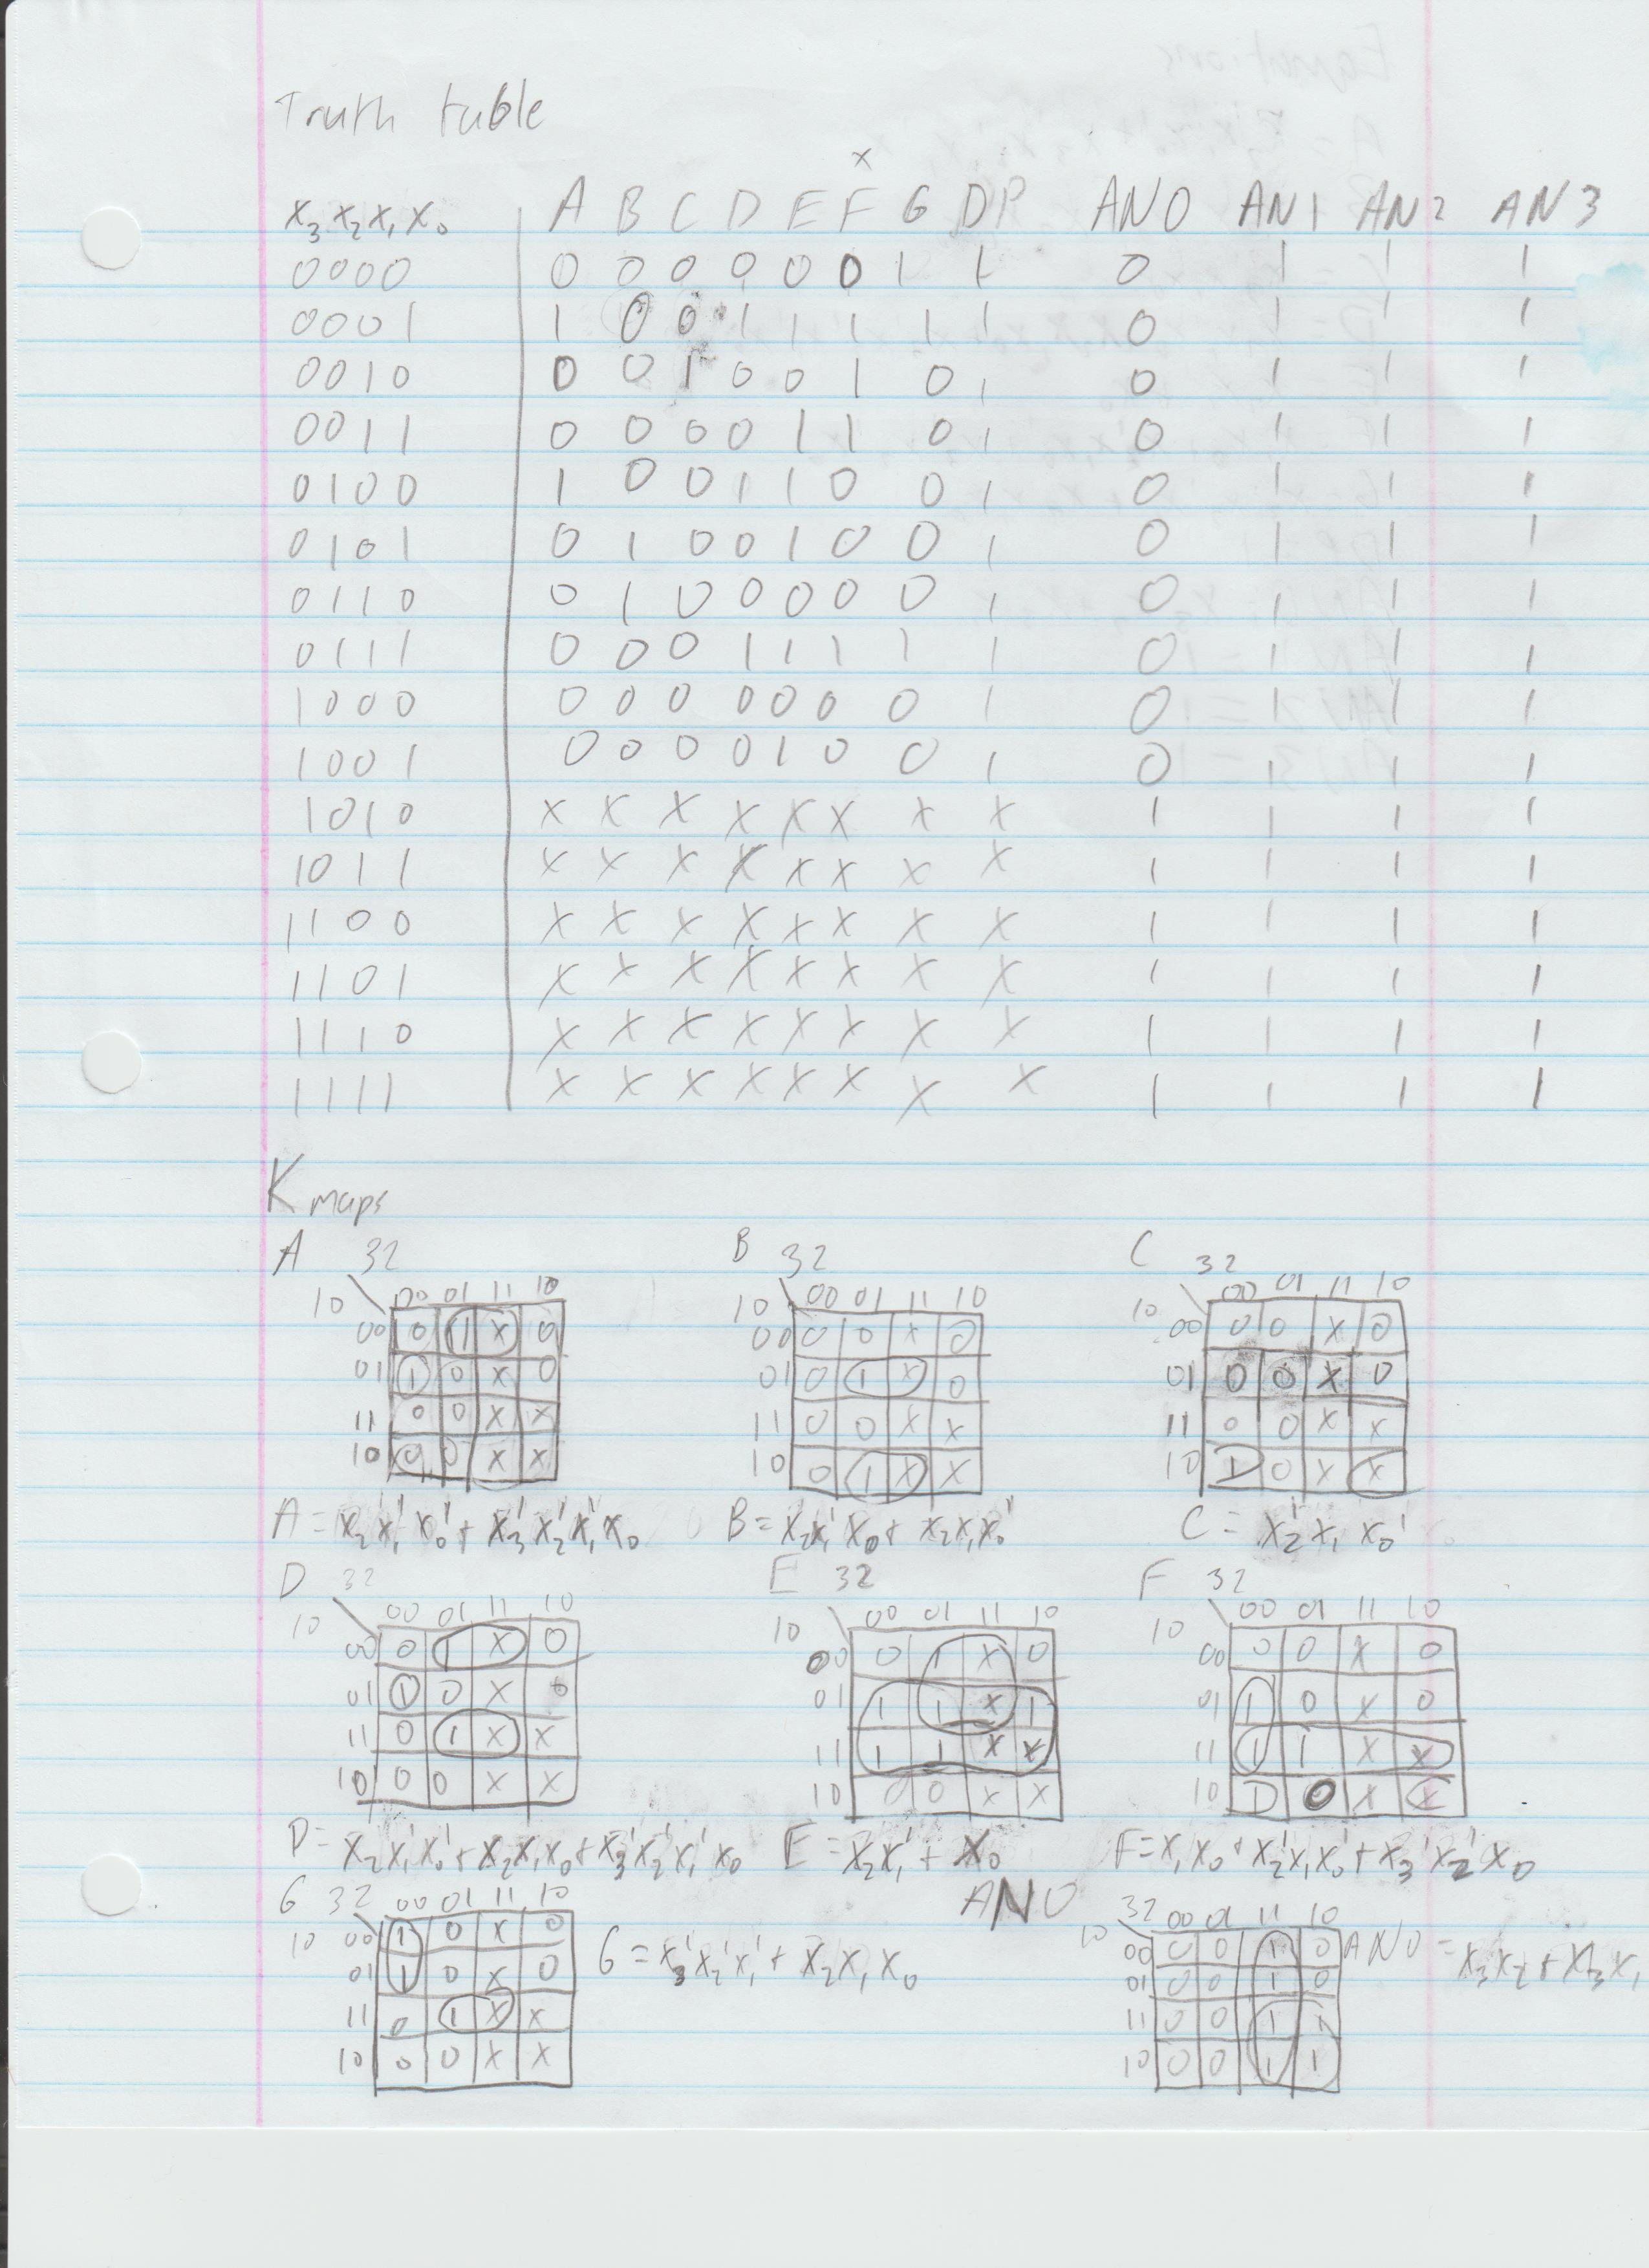 Truth table
x
X₃ X₂ X₁ X₀ A B C D E F G DP AN0 AN1 AN2 AN3
0000 0 0 0 0 0 0 1 1 0 1 1 1
0001 1 0 0 1 1 1 1 1 0 1 1 1
0010 0 0 1 0 0 1 0 1 0 1 1 1
0011 0 0 0 0 1 1 0 1 0 1 1 1
0100 1 0 0 1 1 0 0 1 0 1 1 1
0101 0 1 0 0 1 0 0 1 0 1 1 1
0110 0 1 0 0 0 0 0 1 0 1 1 1
0111 0 0 0 1 1 1 1 1 0 1 1 1
1000 0 0 0 0 0 0 0 1 0 1 1 1
1001 0 0 0 0 1 0 0 1 0 1 1 1
1010 x x x x x x x x 1 1 1 1
1011 x x x x x x x x 1 1 1 1
1100 x x x x x x x x 1 1 1 1
1101 x x x x x x x x 1 1 1 1
1110 x x x x x x x x 1 1 1 1
1111 x x x x x x x x 1 1 1 1
K maps
A 32
10 00 01 11 10
00 0 1 x 0
01 1 0 x 0
11 0 0 x x
10 0 0 x x
A = X₂X₁'X₀' + X₃'X₂'X₁'X₀
B 32
10 00 01 11 10
00 0 0 x 0
01 0 1 x 0
11 0 0 x x
10 0 1 x x
B = X₂X₁'X₀ + X₂X₁X₀'
C 32
10 00 01 11 10
00 0 0 x 0
01 0 0 x 0
11 0 0 x x
10 1 0 x x
C = X₂'X₁X₀'
D 32
10 00 01 11 10
00 0 1 x 0
01 1 0 x 0
11 0 1 x x
10 0 0 x x
D = X₂X₁'X₀' + X₂X₁X₀ + X₃'X₂'X₁'X₀
E 32
10 00 01 11 10
00 0 1 x 0
01 1 1 x 1
11 1 1 x x
10 0 0 x x
E = X₂X₁' + X₀
F 32
10 00 01 11 10
00 0 0 x 0
01 1 0 x 0
11 1 1 x x
10 1 0 x x
F = X₁X₀ + X₂'X₁X₀' + X₃'X₂'X₀
G 32
10 00 01 11 10
00 1 0 x 0
01 1 0 x 0
11 0 1 x x
10 0 0 x x
G = X₃'X₂'X₁' + X₂X₁X₀
AN0
32
10 00 01 11 10
00 0 0 1 0
01 0 0 1 0
11 0 0 1 1
10 0 0 1 1
AN0 = X₃X₂ + X₃X₁